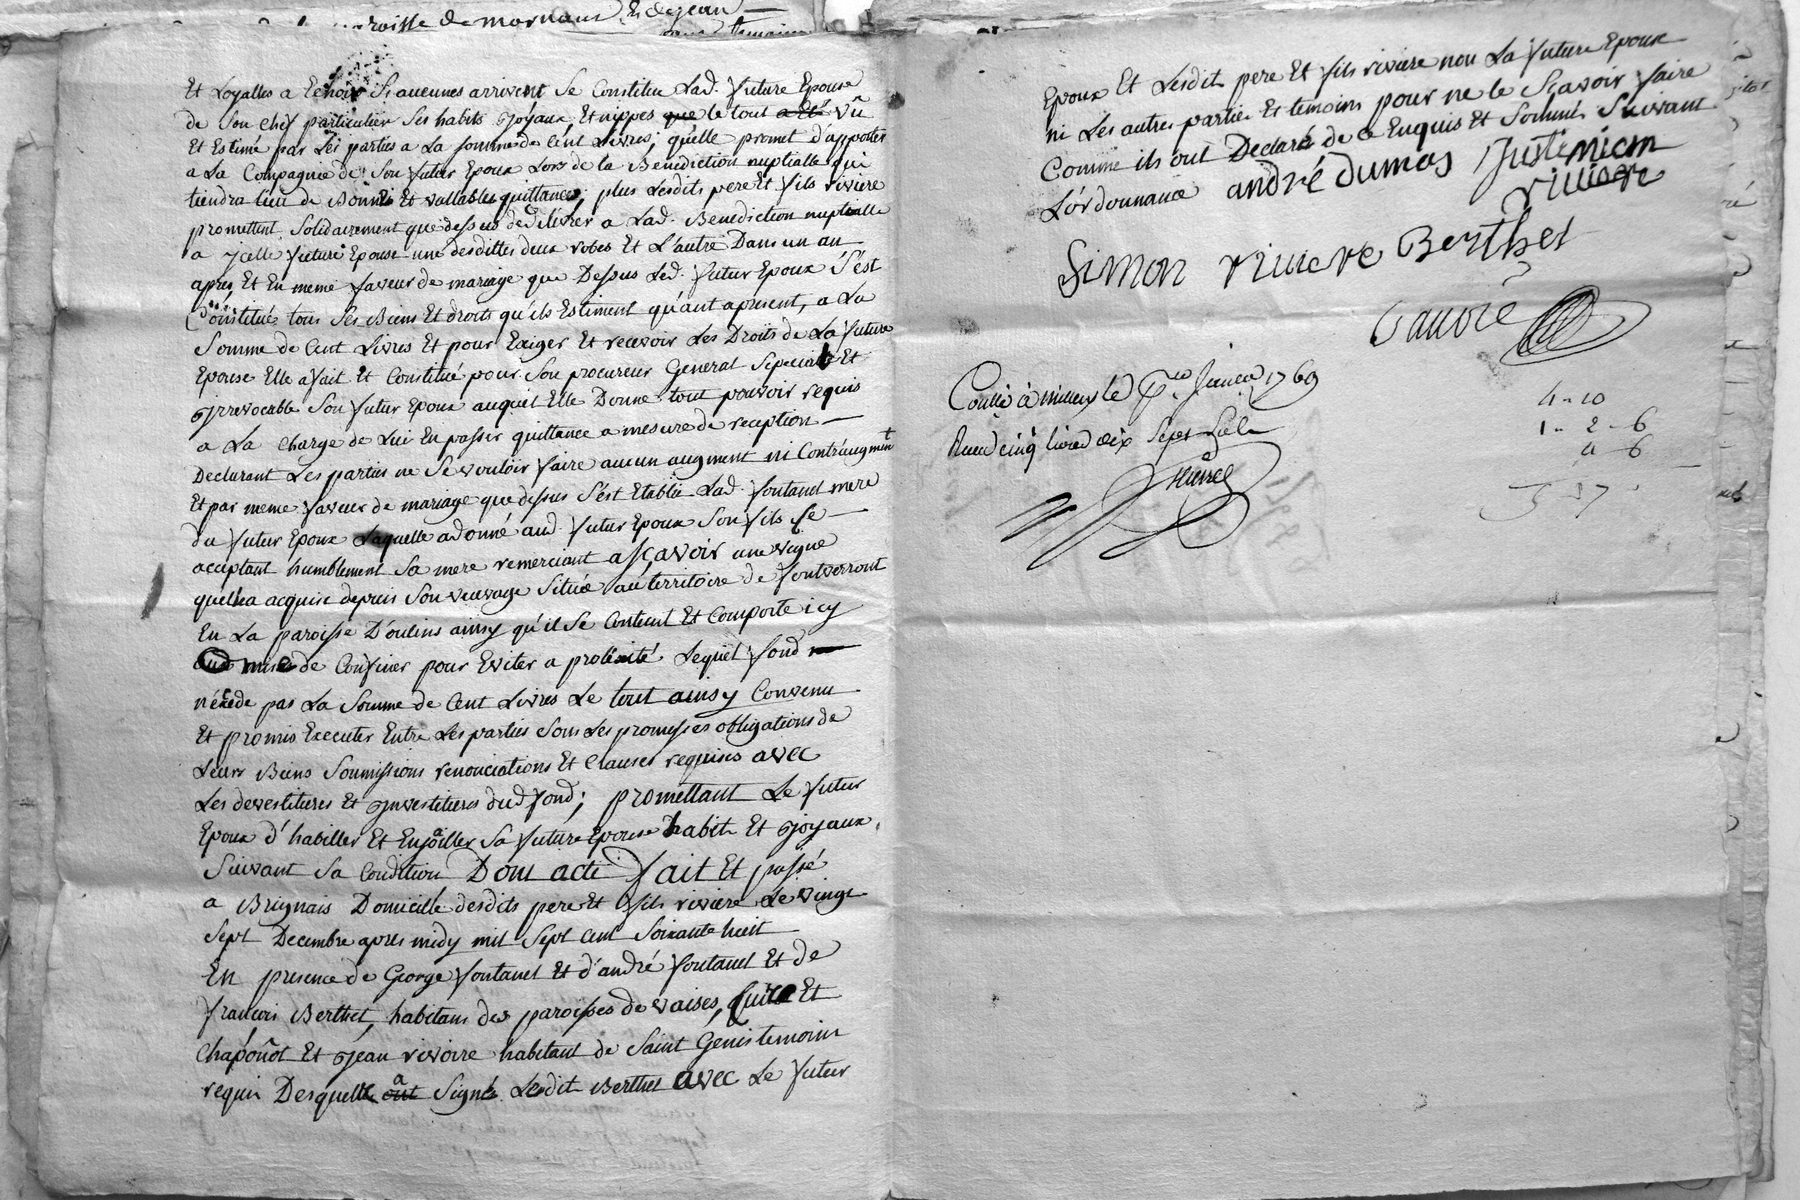 roisse de mornant, Et de jean
Et Loyalles a Echoir Si aucunnes arrivent Se Constitue Lad. future Epouse
de Son chef particulier Ses habits Joyaux, Et nippes que le tout a Eté vû
Et Estimé par Les parties a La Somme de Cent Livres, qu'elle promet d'apporter
a La Compagnie de Son futur Epoux Lors de la Benediction nuptialle qui
tiendra lieu de Bonne Et vallable quittance, plus Lesdits pere Et fils riviere
promettent Solidairement que dessus de delivrer a Lad. Benediction nuptialle
a ycelle future Epouse une desdittes deux robes Et L'autre Dans un an
après, Et En meme faveur de mariage que Dessus Led. futur Epoux S'est
Constitué tous Ses Biens Et droits qu'ils Estiment qu'ant apresent, a La
Somme de Cent Livres Et pour Exiger Et recevoir Les Droits de La future
Epouse Elle a fait Et Constitué pour Son procureur General Special Et
Irrevocable Son futur Epoux auquel Elle Donne tout pouvoir requis
a La Charge de Lui En passer quittance a mesure de reception
Declarant Les parties ne Se vouloir faire aucun augment ni Contraugment
Et par meme faveur de mariage que dessus S'est Etablie Lad. fontanel mere
du futur Epoux Laquelle a donné aud. futur Epoux Son fils Ce
acceptant humblement Sa mere remerciant asçavoir une vigne
qu'elle a acquise depuis Son veuvage Située au territoire de
En La paroisse D'oulins ainsy qu'il Se Contient Et Comporte icy
mise de Confiner pour Eviter a prolixité Lequel fond
n'éxcede pas La Somme de Cent Livres Le tout ainsy Convenu
Et promis Executer Entre Les parties Sous Les promesses obligations de
Leurs Biens Soumissions renonciations Et Clauses requises avec
Les devestitures Et Investitures dud. fond; promettant Le futur
Epoux d'habiller Et Enjoailler Sa future Epouse habits Et Joyaux,
Suivant Sa Condition Dont acte fait Et passé
a Brignais Domicille desdits pere Et fils riviere Le vingt
Sept Decembre apres midy mil Sept Cent Soixante huit
En presence de George fontanel Et d'andré fontanel Et de
françois Berthet, habitans des paroisses de vaises, Et
Chaponôt Et Jean rivoire habitant de Saint Genis temoins
requis Desquelle ont a Signé Ledit Berthet avec Le futur
Epoux Et Lesdits pere Et fils riviere non La future Epouse
ni Les autres parties Et temoins pour ne le Scavoir faire
Comme ils ont Declaré de ce Enquis Et Sommés Suivant
L'ordonnance andré dumas Justiniem
riviere
Simon riviere Berthet
Controllé à millery le 1769
Reçu cinq livres dix Sept Sols
4 - 10
1 - 2 - 6
4 - 6
5 17